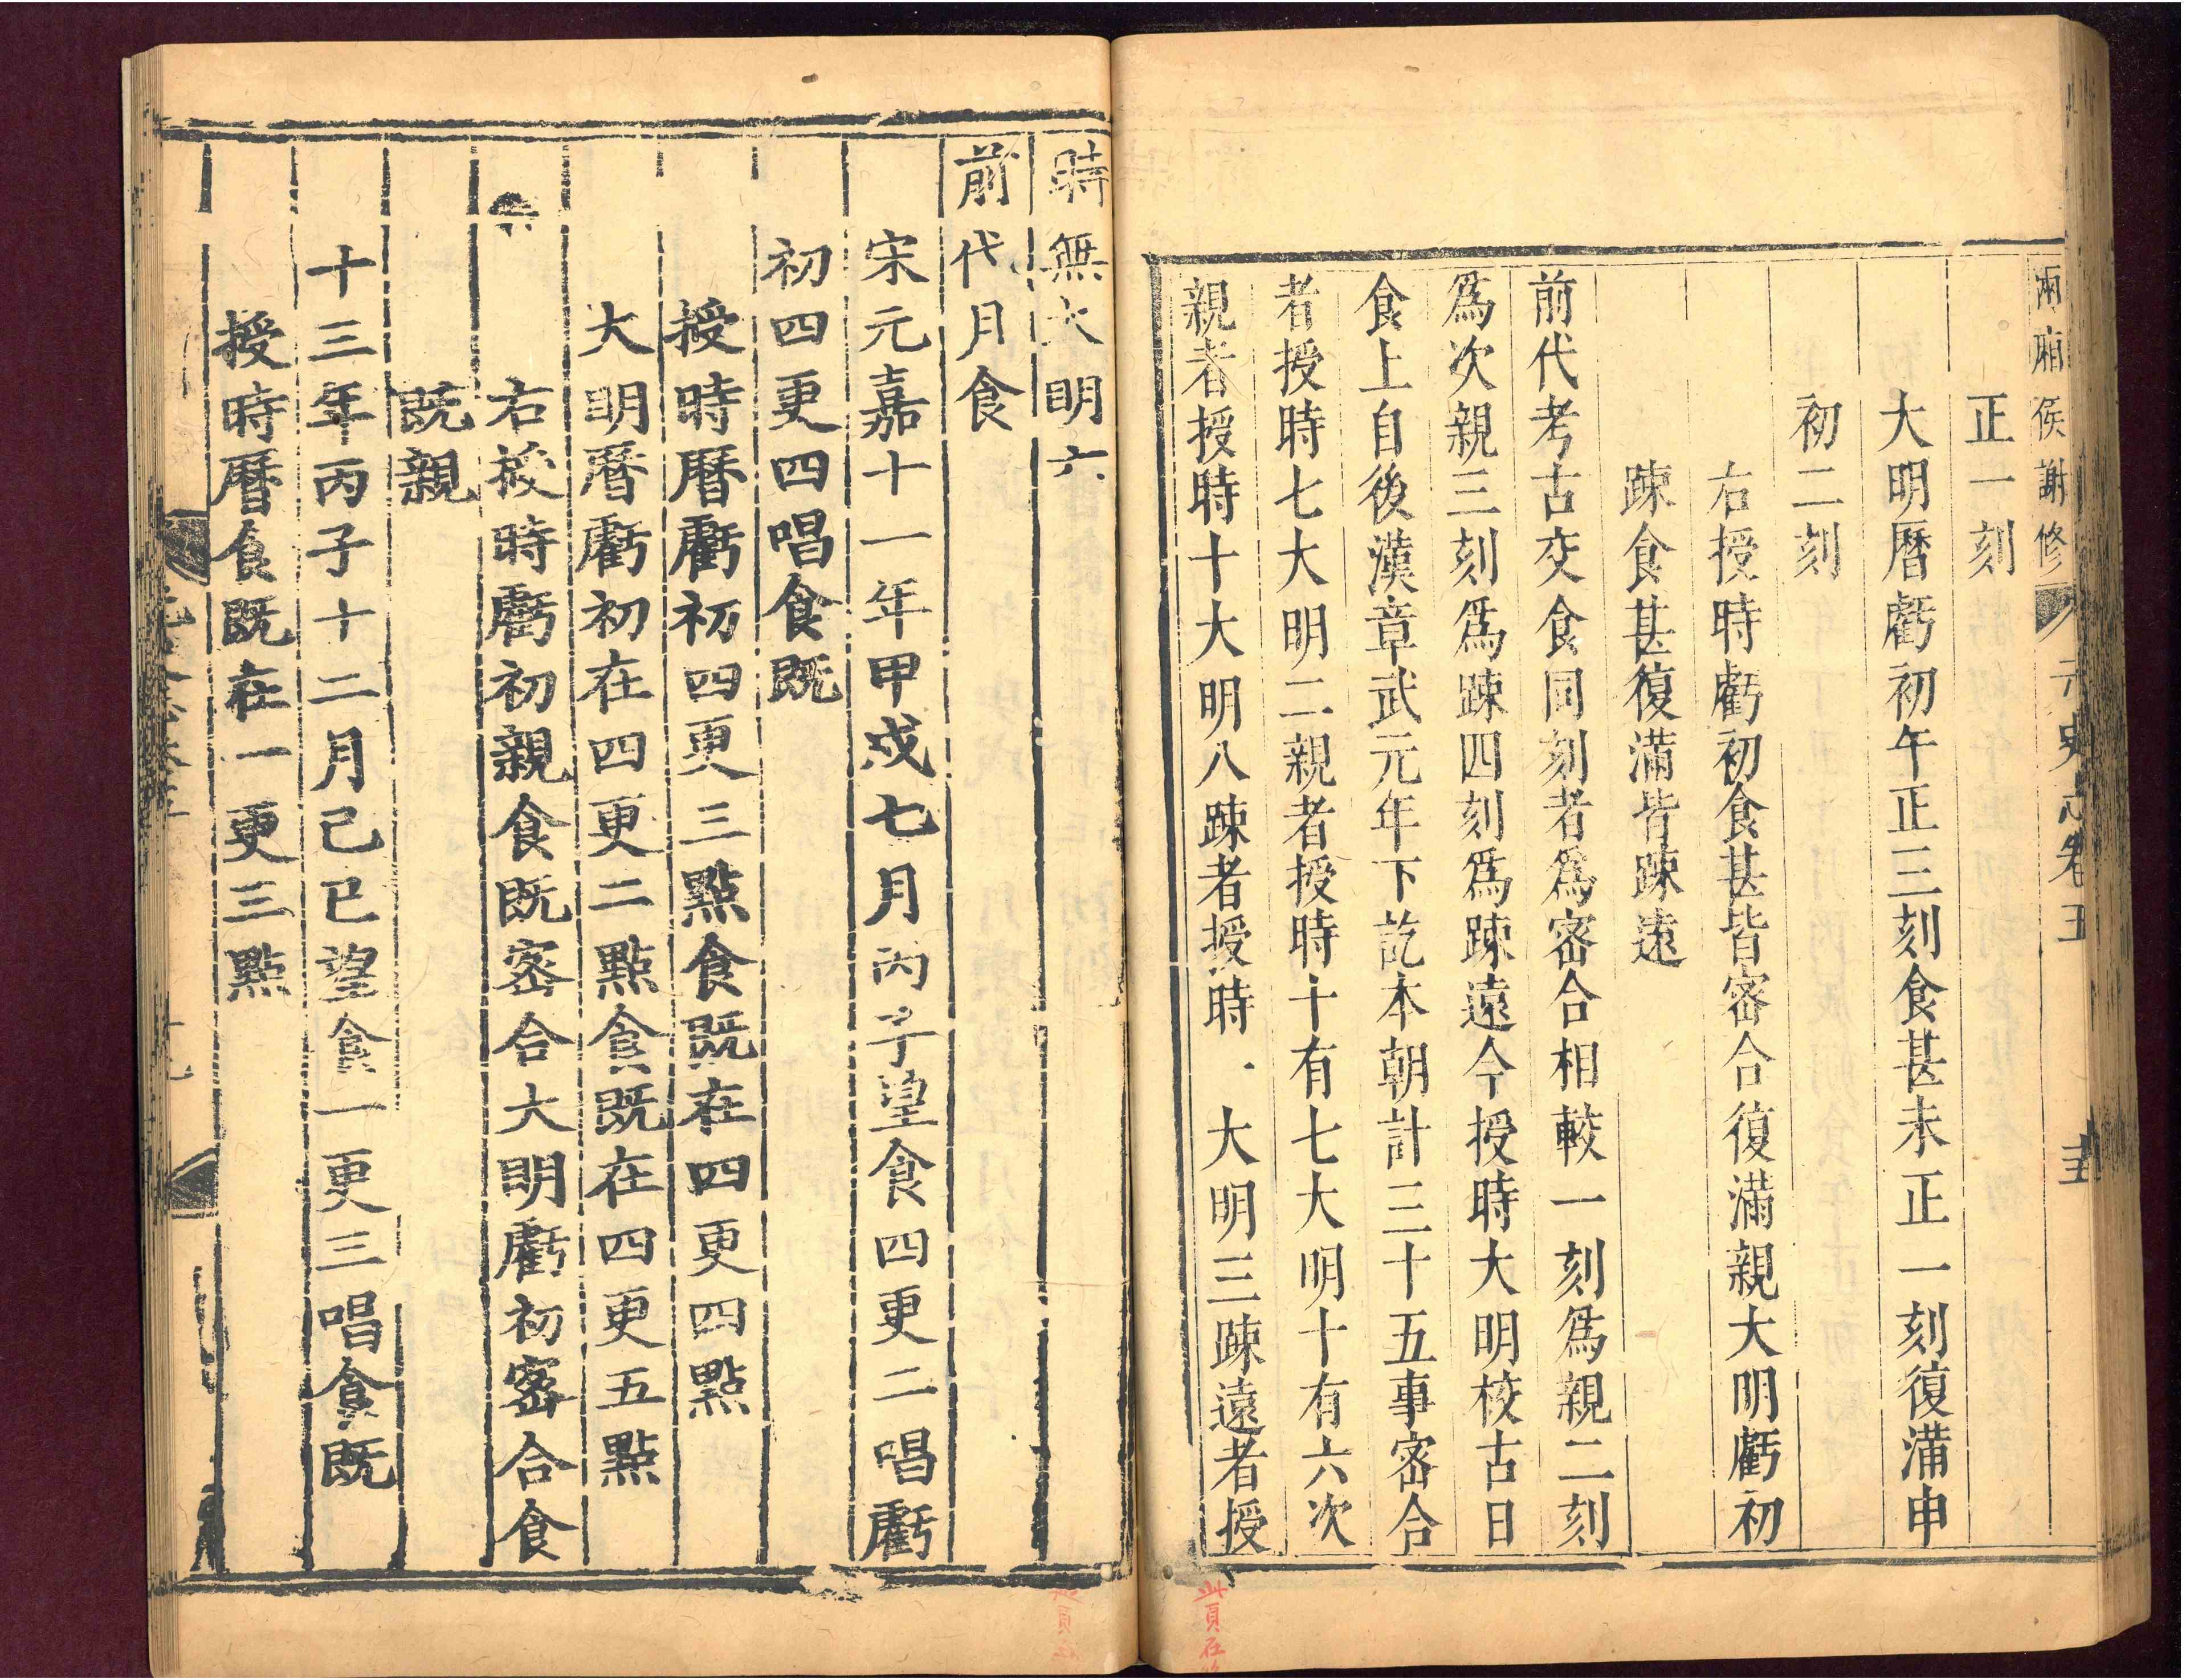 兩廂侯謝修 元史志卷五
正一刻
大明曆虧初午正三刻食甚未正一刻復滿申
初二刻
右授時虧初食甚皆密合復滿親大明虧初
疎食甚復滿皆疎遠
前代考古交食同刻者為密合相較一刻為親二刻
為次親三刻為疎四刻為疎遠今授時大明校古日
食上自後漢章武元年下訖本朝計三十五事密合
者授時七大明二親者授時十有七大明十有六次
親者授時十大明八疎者授時一大明三疎遠者授
時無大明六
前代月食
宋元嘉十一年甲戌七月丙子望食四更二唱虧
初四更四唱食既
授時曆虧初四更三點食既在四更四點
大明曆虧初在四更二點食既在四更五點
右授時虧初親食既密合大明虧初密合食
既親
十三年丙子十二月己巳望食一更三唱食既
授時曆食既在一更三點
此頁在